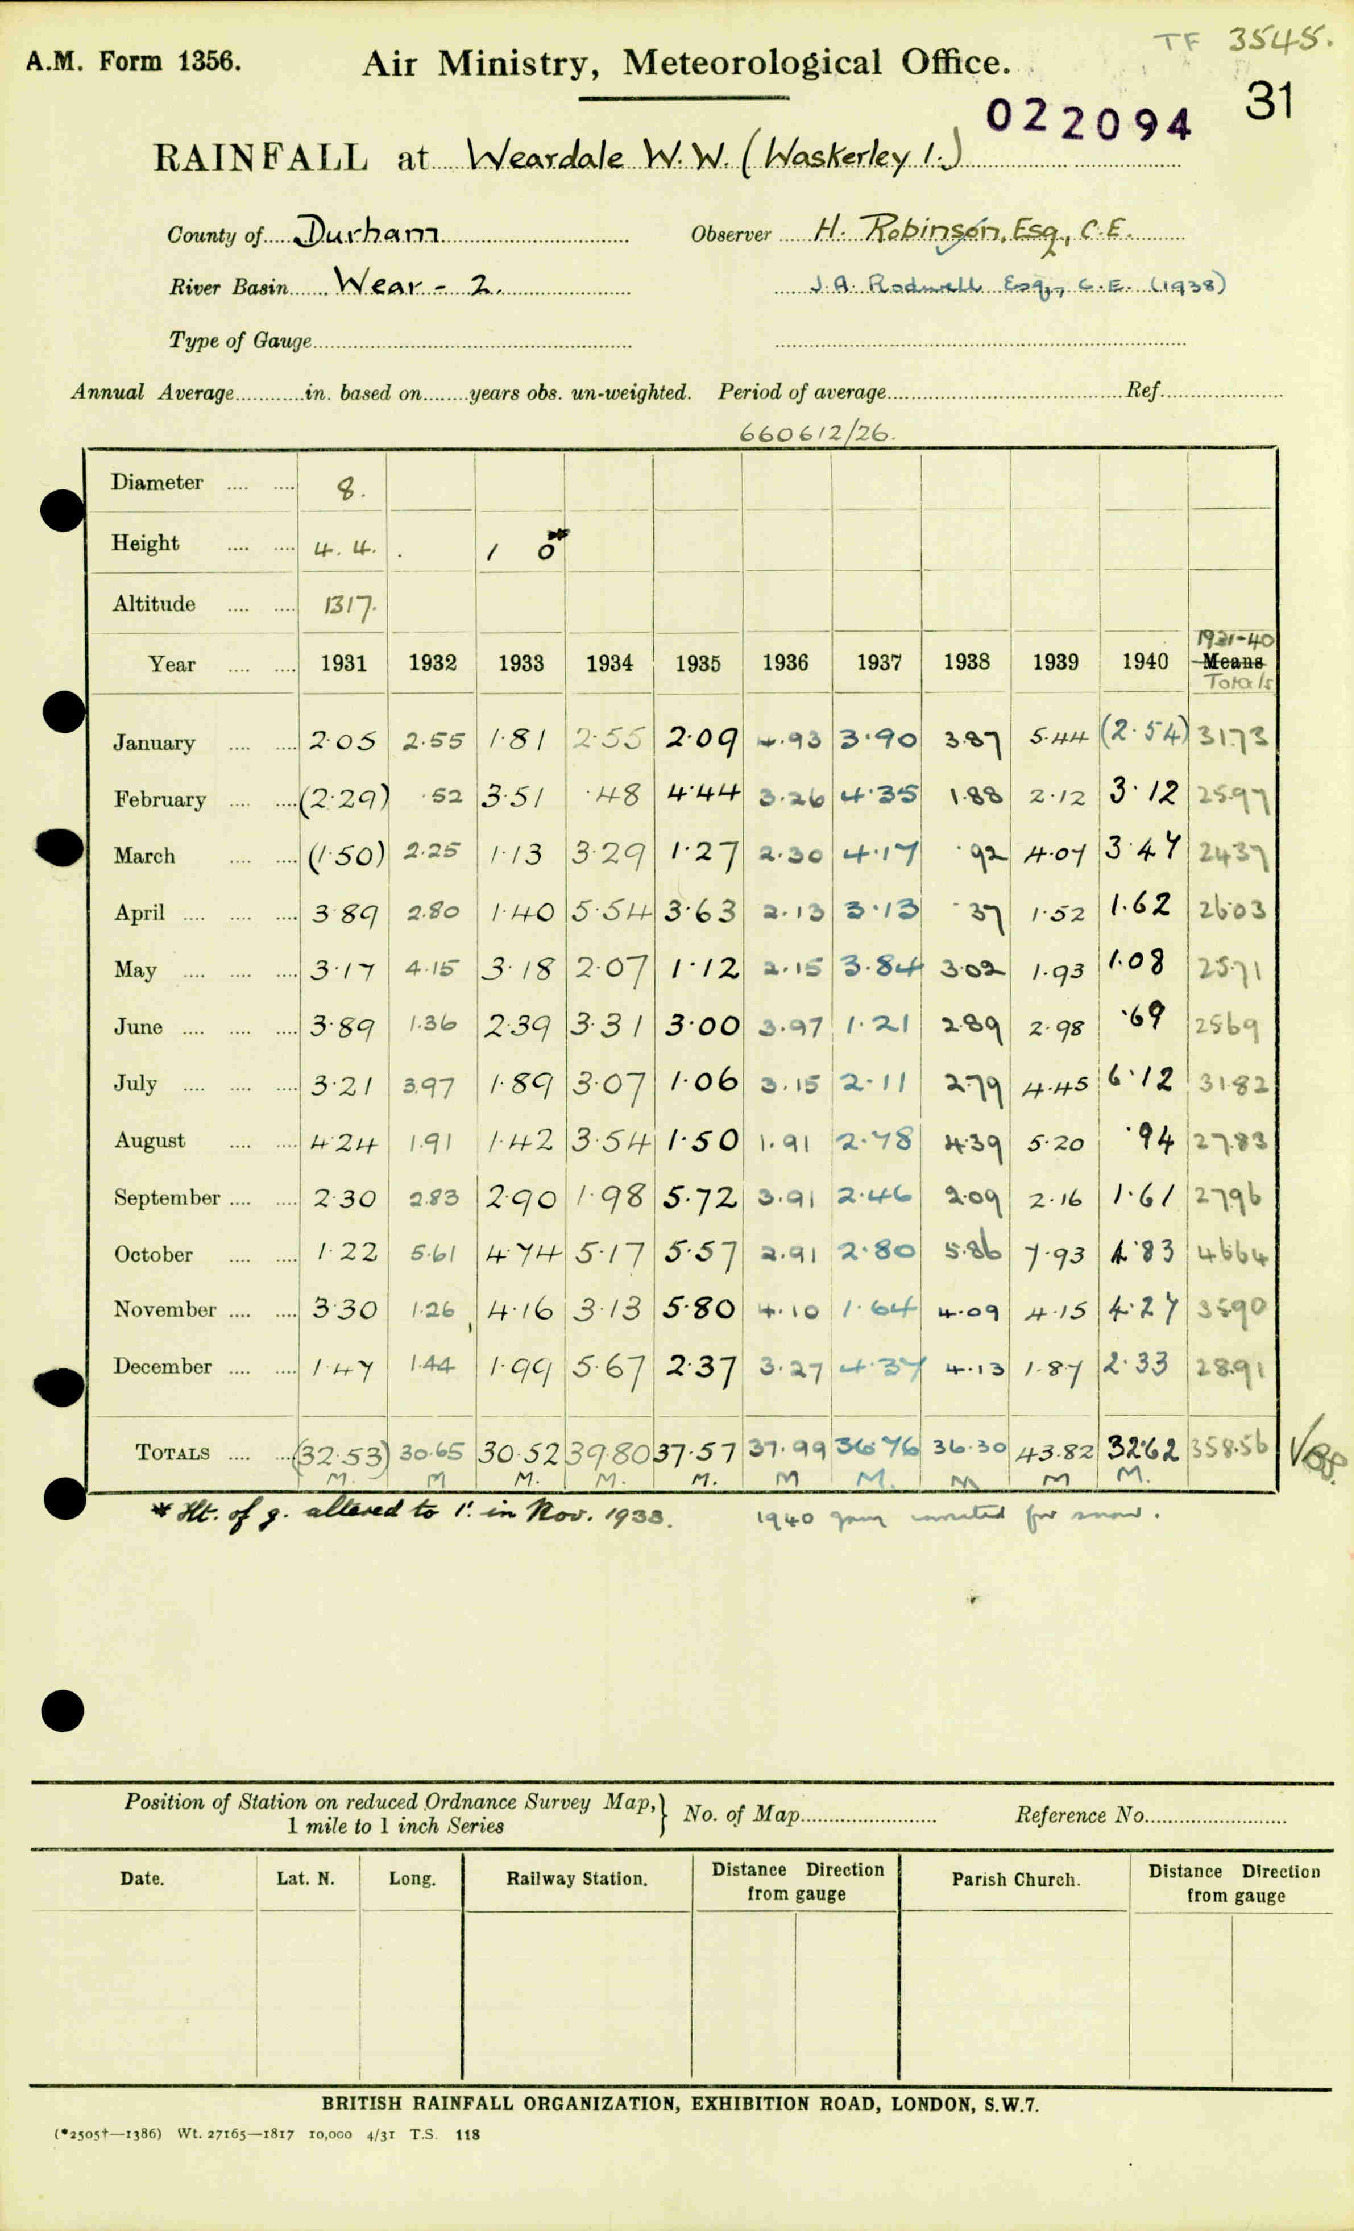 TF 3545.
A.M. Form 1356. Air Ministry, Meteorological Office.
31
022094
RAINFALL at Weardale W.W. (Waskerley 1.)
County of Durham Observer H. Robinson, Esq., C.E.
River Basin Wear - 2. J.A. Rodwell Esq., C.E. (1938)
Type of Gauge
Annual Average in. based on years obs. un-weighted. Period of average Ref.
660612/26.
Diameter 8.
Height 4. 4. 1 0*
Altitude 1317.
1931-40
Year 1931 1932 1933 1934 1935 1936 1937 1938 1939 1940 Means
Totals
January 2.05 2.55 1.81 2.55 2.09 4.93 3.90 3.87 5.44 (2.54) 31.73
February (2.29) .52 3.51 .48 4.44 3.26 4.35 1.88 2.12 3.12 25.97
March (1.50) 2.25 1.13 3.29 1.27 2.30 4.17 .92 4.07 3.47 24.37
April 3.89 2.80 1.40 5.54 3.63 2.13 3.13 .37 1.52 1.62 26.03
May 3.17 4.15 3.18 2.07 1.12 2.15 3.84 3.02 1.93 1.08 25.71
June 3.89 1.36 2.39 3.31 3.00 3.97 1.21 2.89 2.98 .69 25.69
July 3.21 3.97 1.89 3.07 1.06 3.15 2.11 2.79 4.45 6.12 31.82
August 4.24 1.91 1.42 3.54 1.50 1.91 2.78 4.39 5.20 .94 27.83
September 2.30 2.83 2.90 1.98 5.72 3.91 2.46 2.09 2.16 1.61 27.96
October 1.22 5.61 4.74 5.17 5.57 2.91 2.80 5.86 7.93 4.83 46.64
November 3.30 1.26 4.16 3.13 5.80 4.10 1.64 4.09 4.15 4.27 35.90
December 1.47 1.44 1.99 5.67 2.37 3.27 4.37 4.13 1.87 2.33 28.91
TOTALS (32.53) 30.65 30.52 39.80 37.57 37.99 36.76 36.30 43.82 32.62 358.56
M. M M. M. M. M M. M M M.
* Ht. of g. altered to 1'. in Nov. 1933. 1940 for snow.
Position of Station on reduced Ordnance Survey Map, No. of Map Reference No.
1 mile to 1 inch Series
Date. Lat. N. Long. Railway Station. Distance Direction from gauge Parish Church. Distance Direction from gauge
BRITISH RAINFALL ORGANIZATION, EXHIBITION ROAD, LONDON, S.W.7.
(*2505†—1386) Wt. 27165—1817 10,000 4/31 T.S. 118